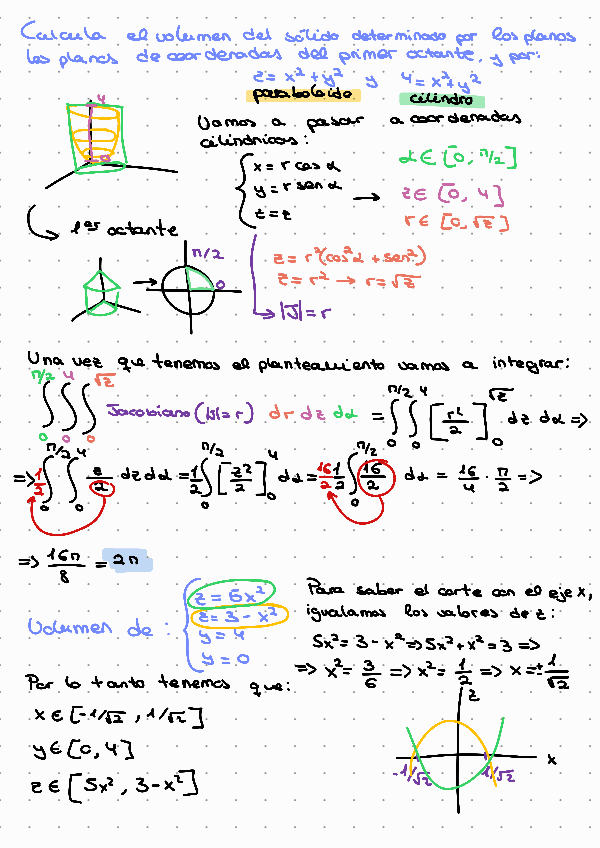 Calcula el volumen del sólido determinado por los planos
los planos de coordenadas del primer octante, y por:
z = x² + y² y 4 = x² + y²
paraboloide cilindro
4
0
Vamos a pasar a coordenadas
cilíndricas:
{ x = r cos α
y = r sen α →
z = z
α ∈ [0, π/2]
z ∈ [0, 4]
r ∈ [0, √z]
1er octante
π/2
0
z = r²(cos²α + sen²)
z = r² → r = √z
→ |J| = r
Una vez que tenemos el planteamiento vamos a integrar:
∫₀^π/2 ∫₀^4 ∫₀^√z Jacobiano (|J| = r) dr dz dα = ∫₀^π/2 ∫₀^4 [r²/2]₀^√z dz dα =>
=> 1/2 ∫₀^π/2 ∫₀^4 z/2 dz dα = 1/2 ∫₀^π/2 [z²/2]₀^4 dα = 16/2 1/2 ∫₀^π/2 16/2 dα = 16/4 · π/2 =>
=> 16π/8 = 2π
Volumen de : { z = 6x²
z = 3 - x²
y = 4
y = 0
Para saber el corte con el eje x,
igualamos los valores de z:
5x² = 3 - x² => 5x² + x² = 3 =>
=> x² = 3/6 => x² = 1/2 => x = ± 1/√2
Por lo tanto tenemos que:
x ∈ [-1/√2, 1/√2]
y ∈ [0, 4]
z ∈ [5x², 3 - x²]
z
x
-1/√2 1/√2